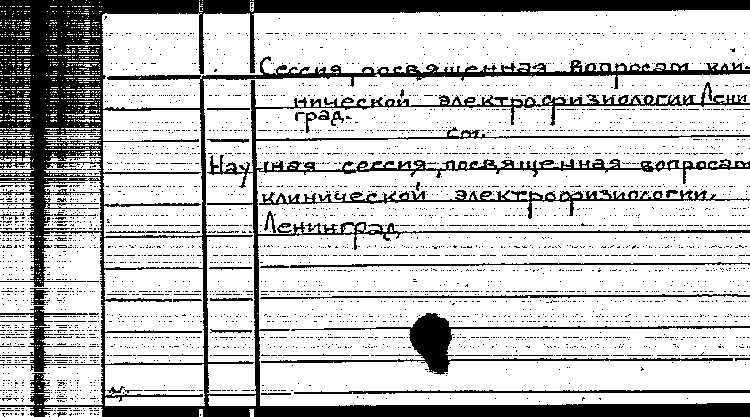 Сессия, посвященная вопросам кли-
нической электрофизиологии, Ленин
град.
см.
Научная сессия, посвященная вопросам
клинической электрофизиологии,
Ленинград